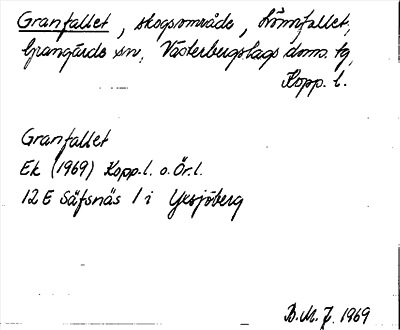 Granfallet, skogsområde, Lömfallet,
Grangärde sn, Västerbergslags doms. tg,
Kopp. l.
Granfallet
Ek (1969) Kopp. l. o. Ör. l.
12 E Säfsnäs 1 i Yxsjöberg
B.M.J. 1969